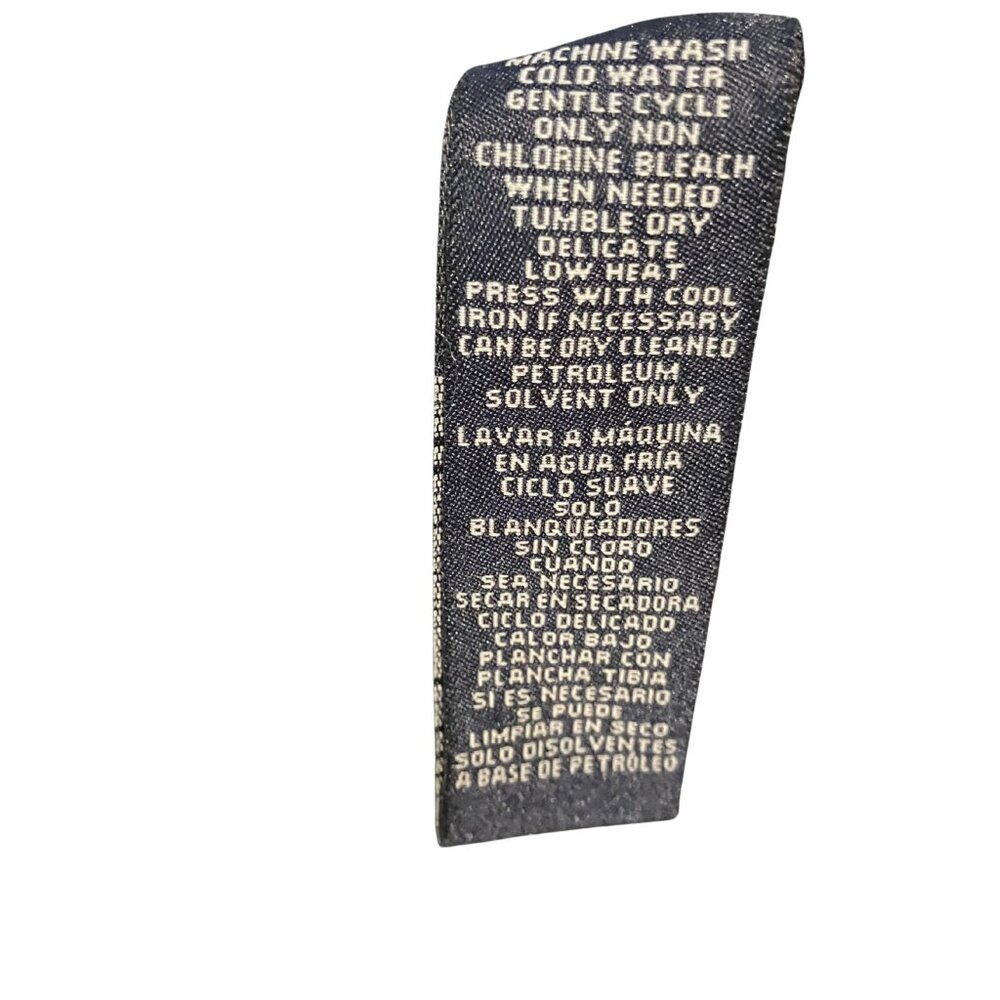 MACHINE WASH
COLD WATER
GENTLE CYCLE
ONLY NON
CHLORINE BLEACH
WHEN NEEDED
TUMBLE DRY
DELICATE
LOW HEAT
PRESS WITH COOL
IRON IF NECESSARY
CAN BE DRY CLEANED
PETROLEUM
SOLVENT ONLY
LAVAR A MÁQUINA
EN AGUA FRÍA
CICLO SUAVE
SOLO
BLANQUEADORES
SIN CLORO
CUANDO
SEA NECESARIO
SECAR EN SECADORA
CICLO DELICADO
CALOR BAJO
PLANCHAR CON
PLANCHA TIBIA
SI ES NECESARIO
SE PUEDE
LIMPIAR EN SECO
SOLO DISOLVENTES
A BASE DE PETROLEO